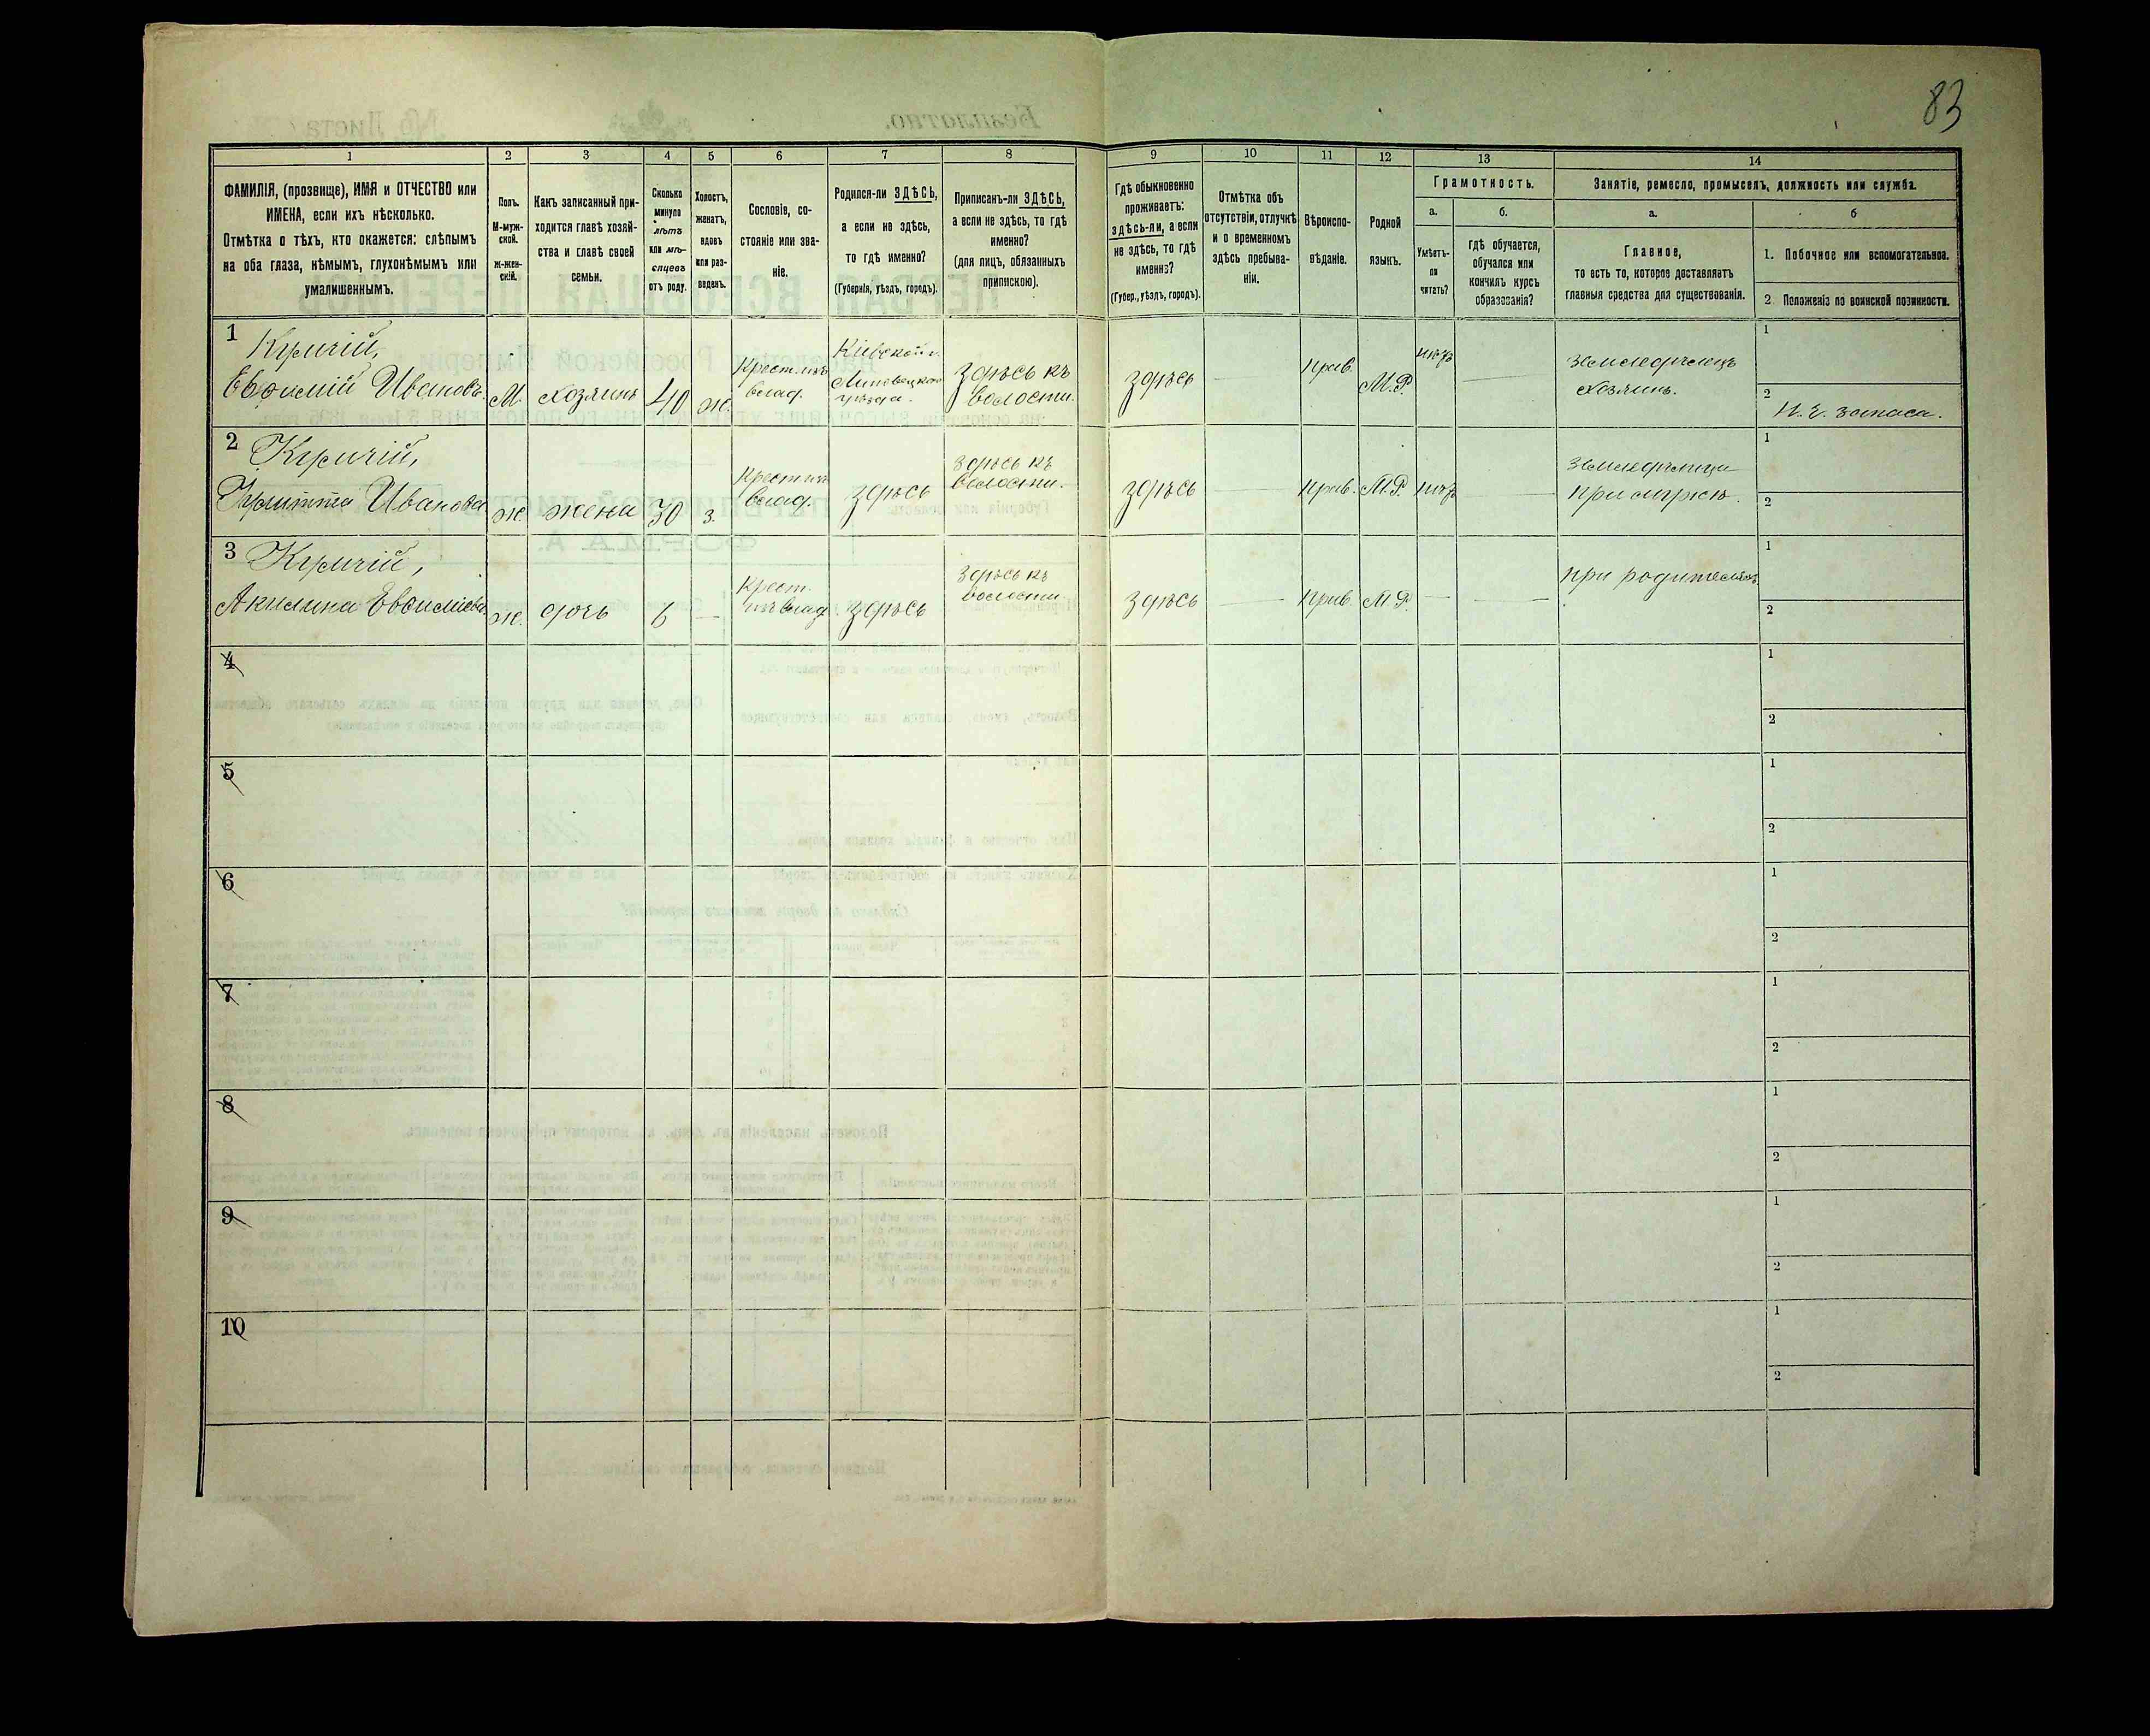 83
1 2 3 4 5 6 7 8 9 10 11 12 13 14
ФАМИЛІЯ, (прозвище), ИМЯ и ОТЧЕСТВО или
ИМЕНА, если ихъ нѣсколько.
Отмѣтка о тѣхъ, кто окажется: слѣпымъ
на оба глаза, нѣмымъ, глухонѣмымъ или
умалишеннымъ.
Полъ.
М-муж-
ской.
Ж-жен-
скій.
Какъ записанный при-
ходится главѣ хозяй-
ства и главѣ своей
семьи.
Сколько
минуло
лѣтъ
или мѣ-
сяцевъ
отъ роду.
Холостъ,
женатъ,
вдовъ
или раз-
веденъ.
Сословіе, со-
стояніе или зва-
ніе.
Родился-ли ЗДѢСЬ,
а если не здѣсь,
то гдѣ именно?
(Губернія, уѣздъ, городъ).
Приписанъ-ли ЗДѢСЬ,
а если не здѣсь, то гдѣ
именно?
(для лицъ, обязанныхъ
припискою).
Гдѣ обыкновенно
проживаетъ:
здѣсь-ли, а если
не здѣсь, то гдѣ
именно?
(Губер., уѣздъ, городъ).
Отмѣтка объ
отсутствіи, отлучкѣ
и о временномъ
здѣсь пребыва-
ніи.
Вѣроиспо-
вѣданіе.
Родной
языкъ.
Грамотность.
а.
Умѣетъ-
ли
читать?
б.
гдѣ обучается,
обучался или
кончилъ курсъ
образованія?
Занятіе, ремесло, промыселъ, должность или служба.
а.
Главное,
то есть то, которое доставляетъ
главныя средства для существованія.
б
1. Побочное или вспомогательное.
2 Положеніе по воинской повинности.
1
Евфимій Ивановъ
М.
хозяинъ
40
ж.
влад.
Кіевской г.
Липовецкого
уѣзда.
здѣсь къ
волости.
здѣсь
Прав.
М.Р.
нѣтъ
земледѣлецъ
хозяинъ.
1
2
запаса.
2
Ивановна
ж.
жена
30
з.
влад.
здѣсь
здѣсь къ
волости.
здѣсь
Прав.
М.Р.
нѣтъ
1
2
3
Акилина Евфиміева
ж.
дочь
6
Крест.
здѣсь
здѣсь къ
волости
здѣсь
Прав.
М.Р.
при родителяхъ
1
2
4
1
2
5
1
2
6
1
2
7
1
2
8
1
2
9
1
2
10
1
2